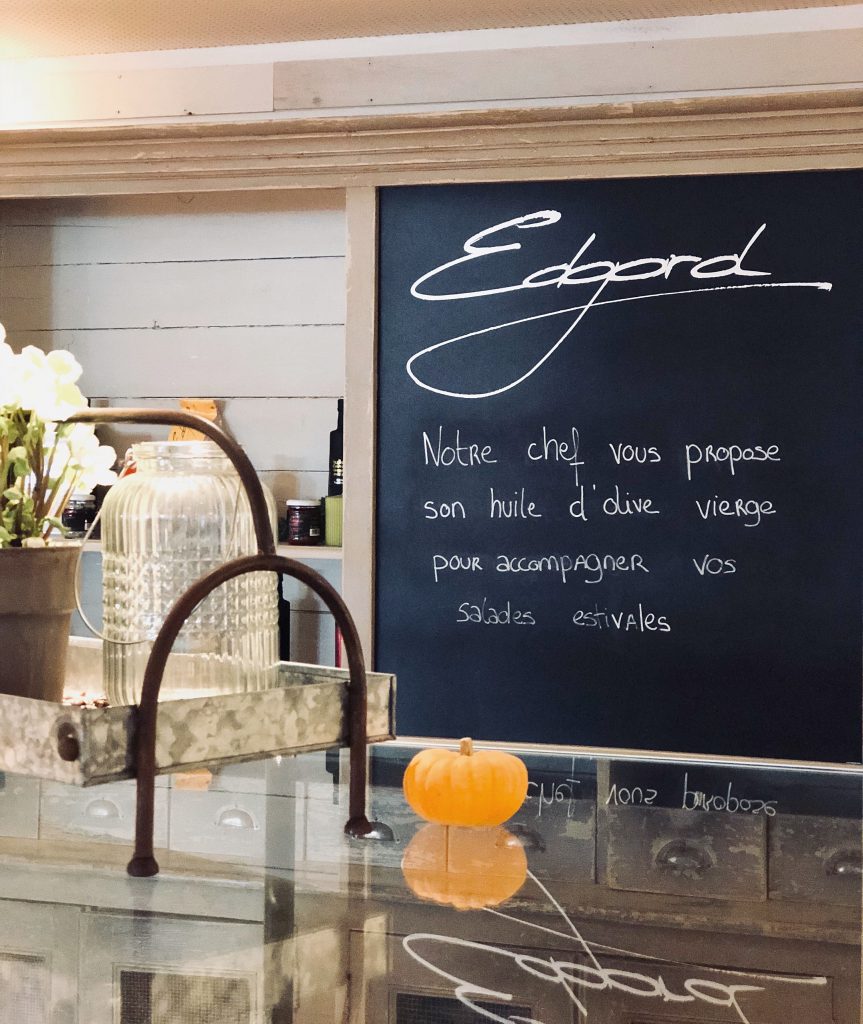 Edgard
Notre chef vous propose
son huile d'olive vierge
pour accompagner vos
salades estivales